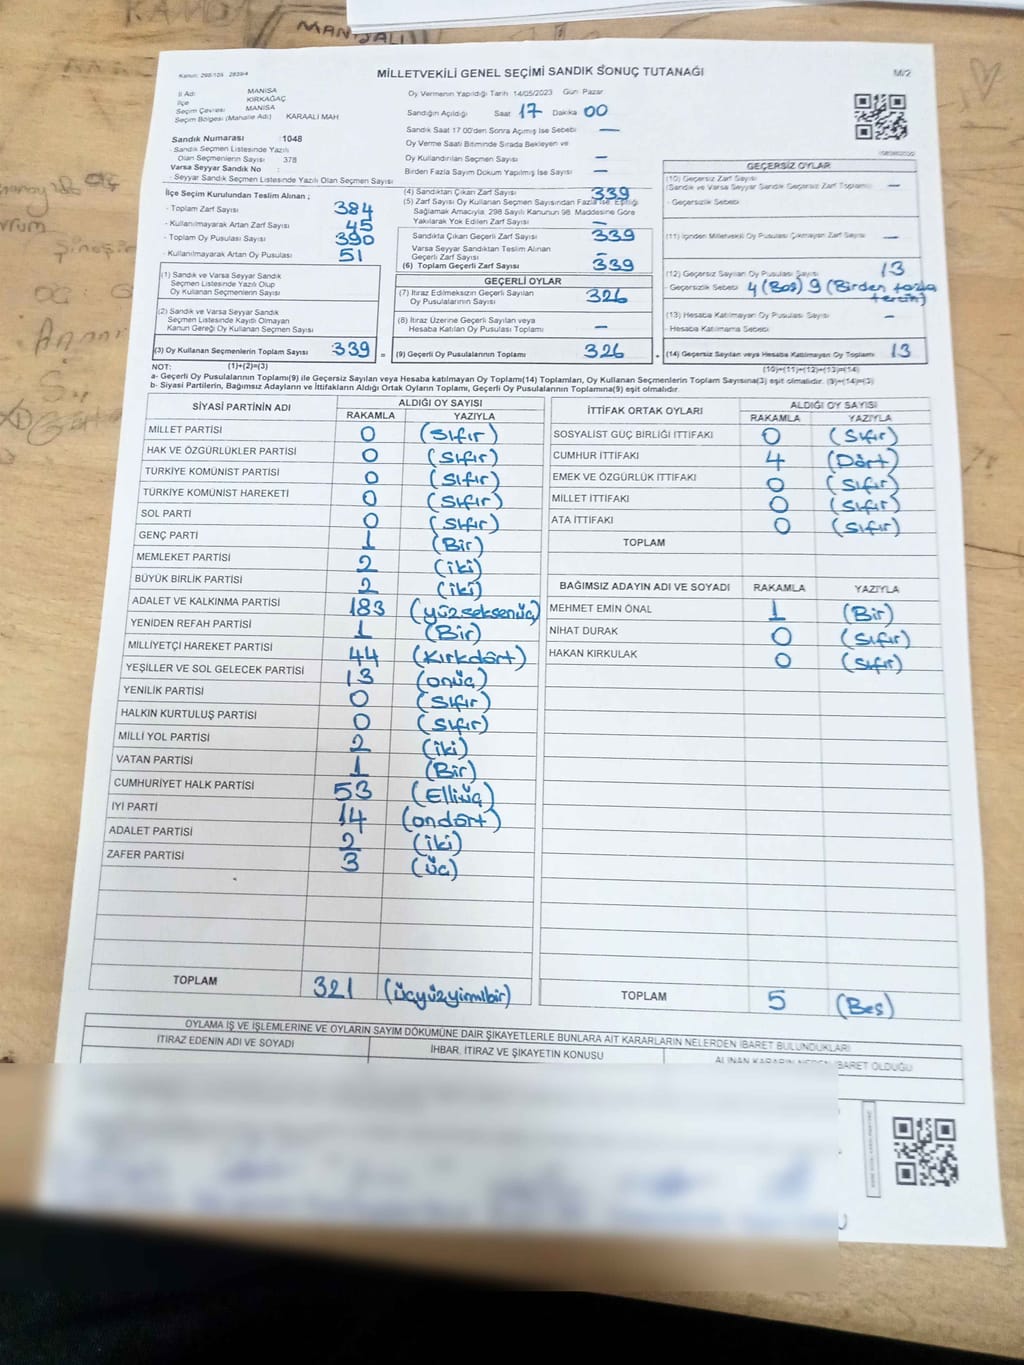 MANİSALI
Kanun: 298/105 2839/4
MİLLETVEKİLİ GENEL SEÇİMİ SANDIK SONUÇ TUTANAĞI
M/2
İl Adı MANİSA
İlçe KIRKAĞAÇ
Seçim Çevresi MANİSA
Seçim Bölgesi (Mahalle Adı) KARAALİ MAH
Sandık Numarası :1048
- Sandık Seçmen Listesinde Yazılı
Olan Seçmenlerin Sayısı 378
Varsa Seyyar Sandık No :
- Seyyar Sandık Seçmen Listesinde Yazılı Olan Seçmen Sayısı
Oy Vermenin Yapıldığı Tarih 14/05/2023 Gün Pazar
Sandığın Açıldığı Saat 17 Dakika 00
Sandık Saat 17 00'den Sonra Açılmış İse Sebebi —
Oy Verme Saati Bitiminde Sırada Bekleyen ve
Oy Kullandırılan Seçmen Sayısı —
Birden Fazla Sayım Döküm Yapılmış İse Sayısı —
İlçe Seçim Kurulundan Teslim Alınan ;
- Toplam Zarf Sayısı 384
- Kullanılmayarak Artan Zarf Sayısı 45
- Toplam Oy Pusulası Sayısı 390
- Kullanılmayarak Artan Oy Pusulası 51
(1) Sandık ve Varsa Seyyar Sandık
Seçmen Listesinde Yazılı Olup
Oy Kullanan Seçmenlerin Sayısı
(2) Sandık ve Varsa Seyyar Sandık
Seçmen Listesinde Kaydı Olmayan
Kanun Gereği Oy Kullanan Seçmen Sayısı
(3) Oy Kullanan Seçmenlerin Toplam Sayısı 339 =
(4) Sandıktan Çıkan Zarf Sayısı 339
(5) Zarf Sayısı Oy Kullanan Seçmen Sayısından Fazla ise, Eşitliği
Sağlamak Amacıyla, 298 Sayılı Kanunun 98. Maddesine Göre
Yakılarak Yok Edilen Zarf Sayısı —
Sandıkta Çıkan Geçerli Zarf Sayısı 339
Varsa Seyyar Sandıktan Teslim Alınan
Geçerli Zarf Sayısı —
(6) Toplam Geçerli Zarf Sayısı 339
GEÇERLİ OYLAR
(7) İtiraz Edilmeksizin Geçerli Sayılan
Oy Pusulalarının Sayısı 326
(8) İtiraz Üzerine Geçerli Sayılan veya
Hesaba Katılan Oy Pusulası Toplamı —
(9) Geçerli Oy Pusulalarının Toplamı 326 +
GEÇERSİZ OYLAR
(10) Geçersiz Zarf Sayısı
(Sandık ve Varsa Seyyar Sandık Geçersiz Zarf Toplamı) —
- Geçersizlik Sebebi
(11) İçinden Milletvekili Oy Pusulası Çıkmayan Zarf Sayısı —
(12) Geçersiz Sayılan Oy Pusulası Sayısı 13
- Geçersizlik Sebebi 4 (Boş) 9 (Birden fazla
tercih)
(13) Hesaba Katılmayan Oy Pusulası Sayısı —
- Hesaba Katılmama Sebebi
(14) Geçersiz Sayılan veya Hesaba Katılmayan Oy Toplamı 13
NOT: (1)+(2)=(3)
(10)+(11)+(12)+(13)=(14)
a- Geçerli Oy Pusulalarının Toplamı(9) ile Geçersiz Sayılan veya Hesaba katılmayan Oy Toplamı(14) Toplamları, Oy Kullanan Seçmenlerin Toplam Sayısına(3) eşit olmalıdır. (9)+(14)=(3)
b- Siyasi Partilerin, Bağımsız Adayların ve İttifakların Aldığı Ortak Oyların Toplamı, Geçerli Oy Pusulalarının Toplamına(9) eşit olmalıdır.
SİYASİ PARTİNİN ADI ALDIĞI OY SAYISI
RAKAMLA YAZIYLA
MİLLET PARTİSİ 0 (Sıfır)
HAK VE ÖZGÜRLÜKLER PARTİSİ 0 (Sıfır)
TÜRKİYE KOMÜNİST PARTİSİ 0 (Sıfır)
TÜRKİYE KOMÜNİST HAREKETİ 0 (Sıfır)
SOL PARTİ 0 (Sıfır)
GENÇ PARTİ 1 (Bir)
MEMLEKET PARTİSİ 2 (iki)
BÜYÜK BİRLİK PARTİSİ 2 (iki)
ADALET VE KALKINMA PARTİSİ 183 (yüzseksenüç)
YENİDEN REFAH PARTİSİ 1 (Bir)
MİLLİYETÇİ HAREKET PARTİSİ 44 (Kırkdört)
YEŞİLLER VE SOL GELECEK PARTİSİ 13 (onüç)
YENİLİK PARTİSİ 0 (Sıfır)
HALKIN KURTULUŞ PARTİSİ 0 (Sıfır)
MİLLİ YOL PARTİSİ 2 (iki)
VATAN PARTİSİ 1 (Bir)
CUMHURİYET HALK PARTİSİ 53 (Elliüç)
İYİ PARTİ 14 (ondört)
ADALET PARTİSİ 2 (iki)
ZAFER PARTİSİ 3 (üç)
TOPLAM 321 (üçyüzyirmibir)
İTTİFAK ORTAK OYLARI ALDIĞI OY SAYISI
RAKAMLA YAZIYLA
SOSYALİST GÜÇ BİRLİĞİ İTTİFAKI 0 (Sıfır)
CUMHUR İTTİFAKI 4 (Dört)
EMEK VE ÖZGÜRLÜK İTTİFAKI 0 (Sıfır)
MİLLET İTTİFAKI 0 (Sıfır)
ATA İTTİFAKI 0 (Sıfır)
TOPLAM
BAĞIMSIZ ADAYIN ADI VE SOYADI RAKAMLA YAZIYLA
MEHMET EMİN ÖNAL 1 (Bir)
NİHAT DURAK 0 (Sıfır)
HAKAN KIRKULAK 0 (Sıfır)
TOPLAM 5 (Beş)
OYLAMA İŞ VE İŞLEMLERİNE VE OYLARIN SAYIM DÖKÜMÜNE DAİR ŞİKAYETLERLE BUNLARA AİT KARARLARIN NELERDEN İBARET BULUNDUKLARI
İTİRAZ EDENİN ADI VE SOYADI
İHBAR, İTİRAZ VE ŞİKAYETİN KONUSU
ALINAN KARARIN NEDEN İBARET OLDUĞU